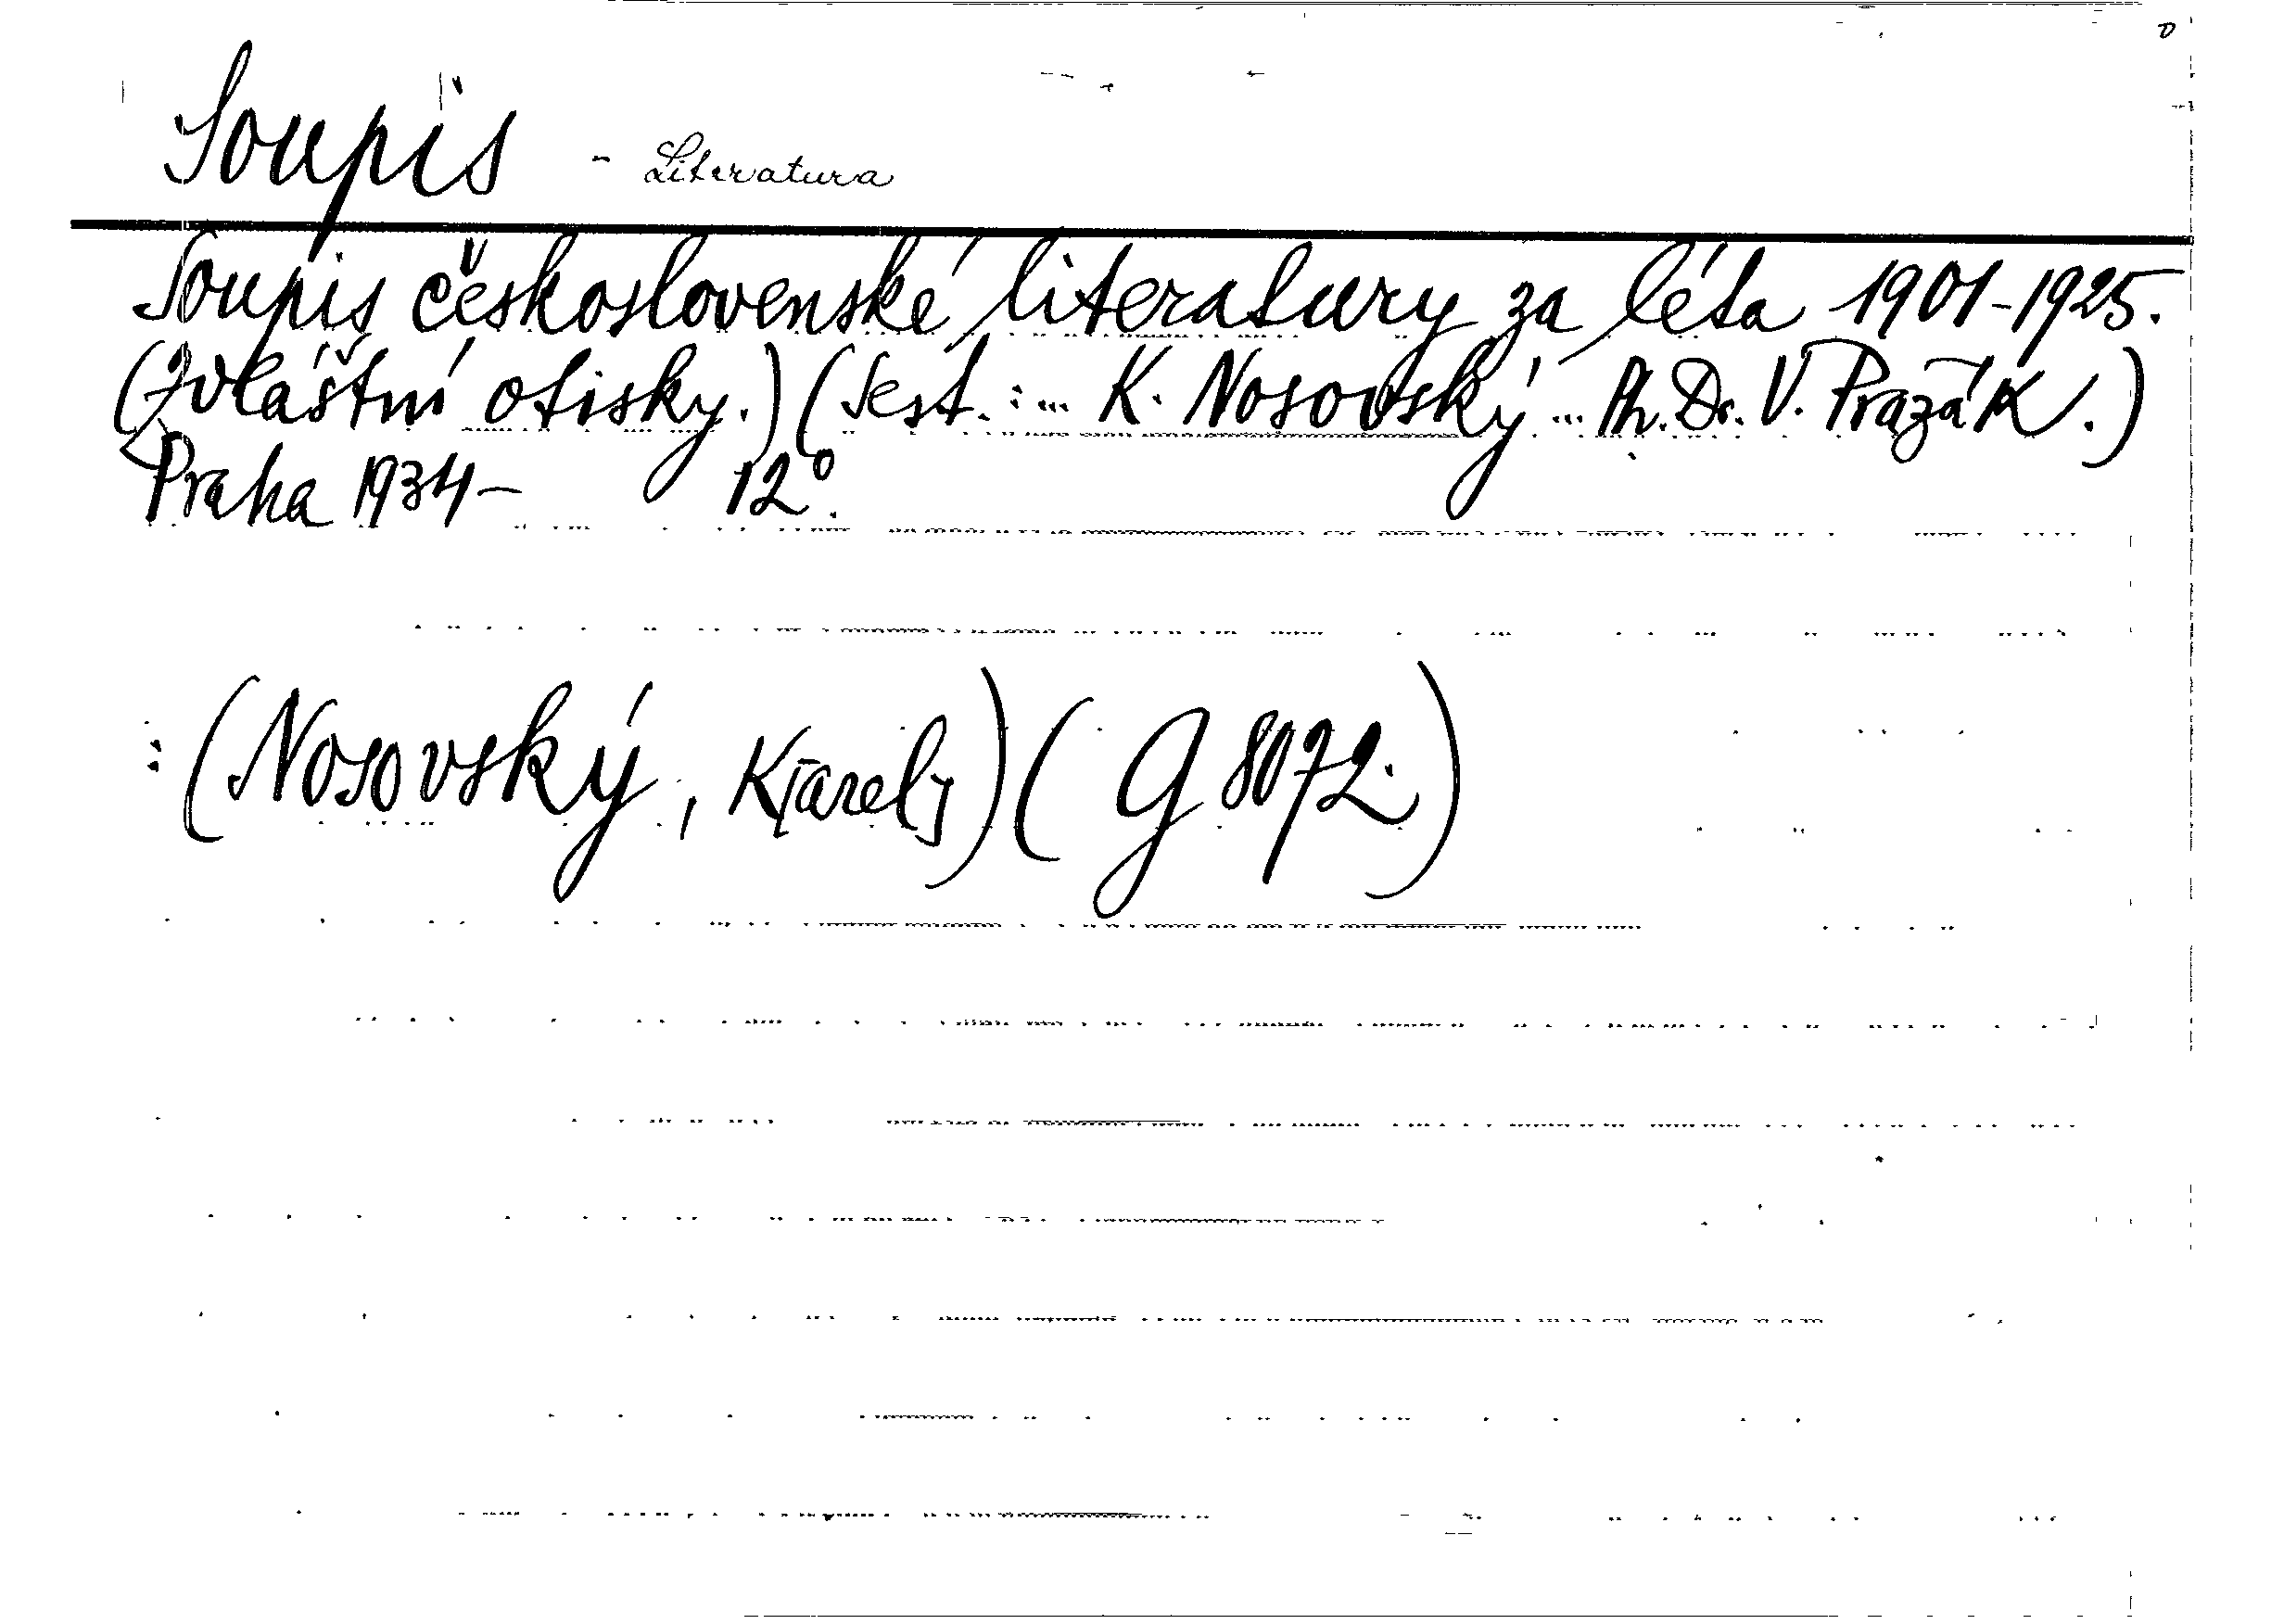 Soupis - Literatura
Soupis československé literatury za léta 1901-1925.
(Zvláštní otisky.) (Sest.: ... K. Nosovský ... Ph. Dr. V. Pražák.)
Praha 1934- 12°.
: (Nosovský, K[arel]) (G 8072.)